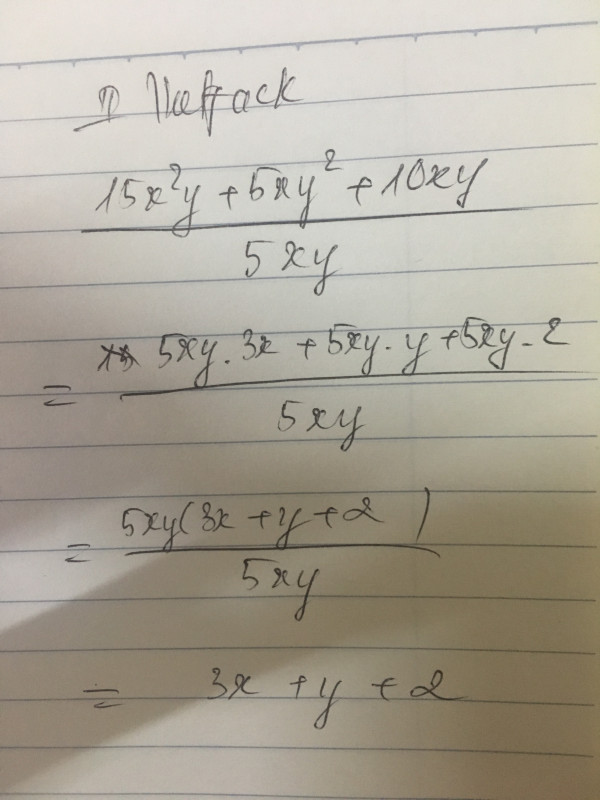 15x²y + 5xy² + 10xy
5xy
= 5xy . 3x + 5xy . y + 5xy . 2
5xy
= 5xy(3x + y + 2)
5xy
= 3x + y + 2